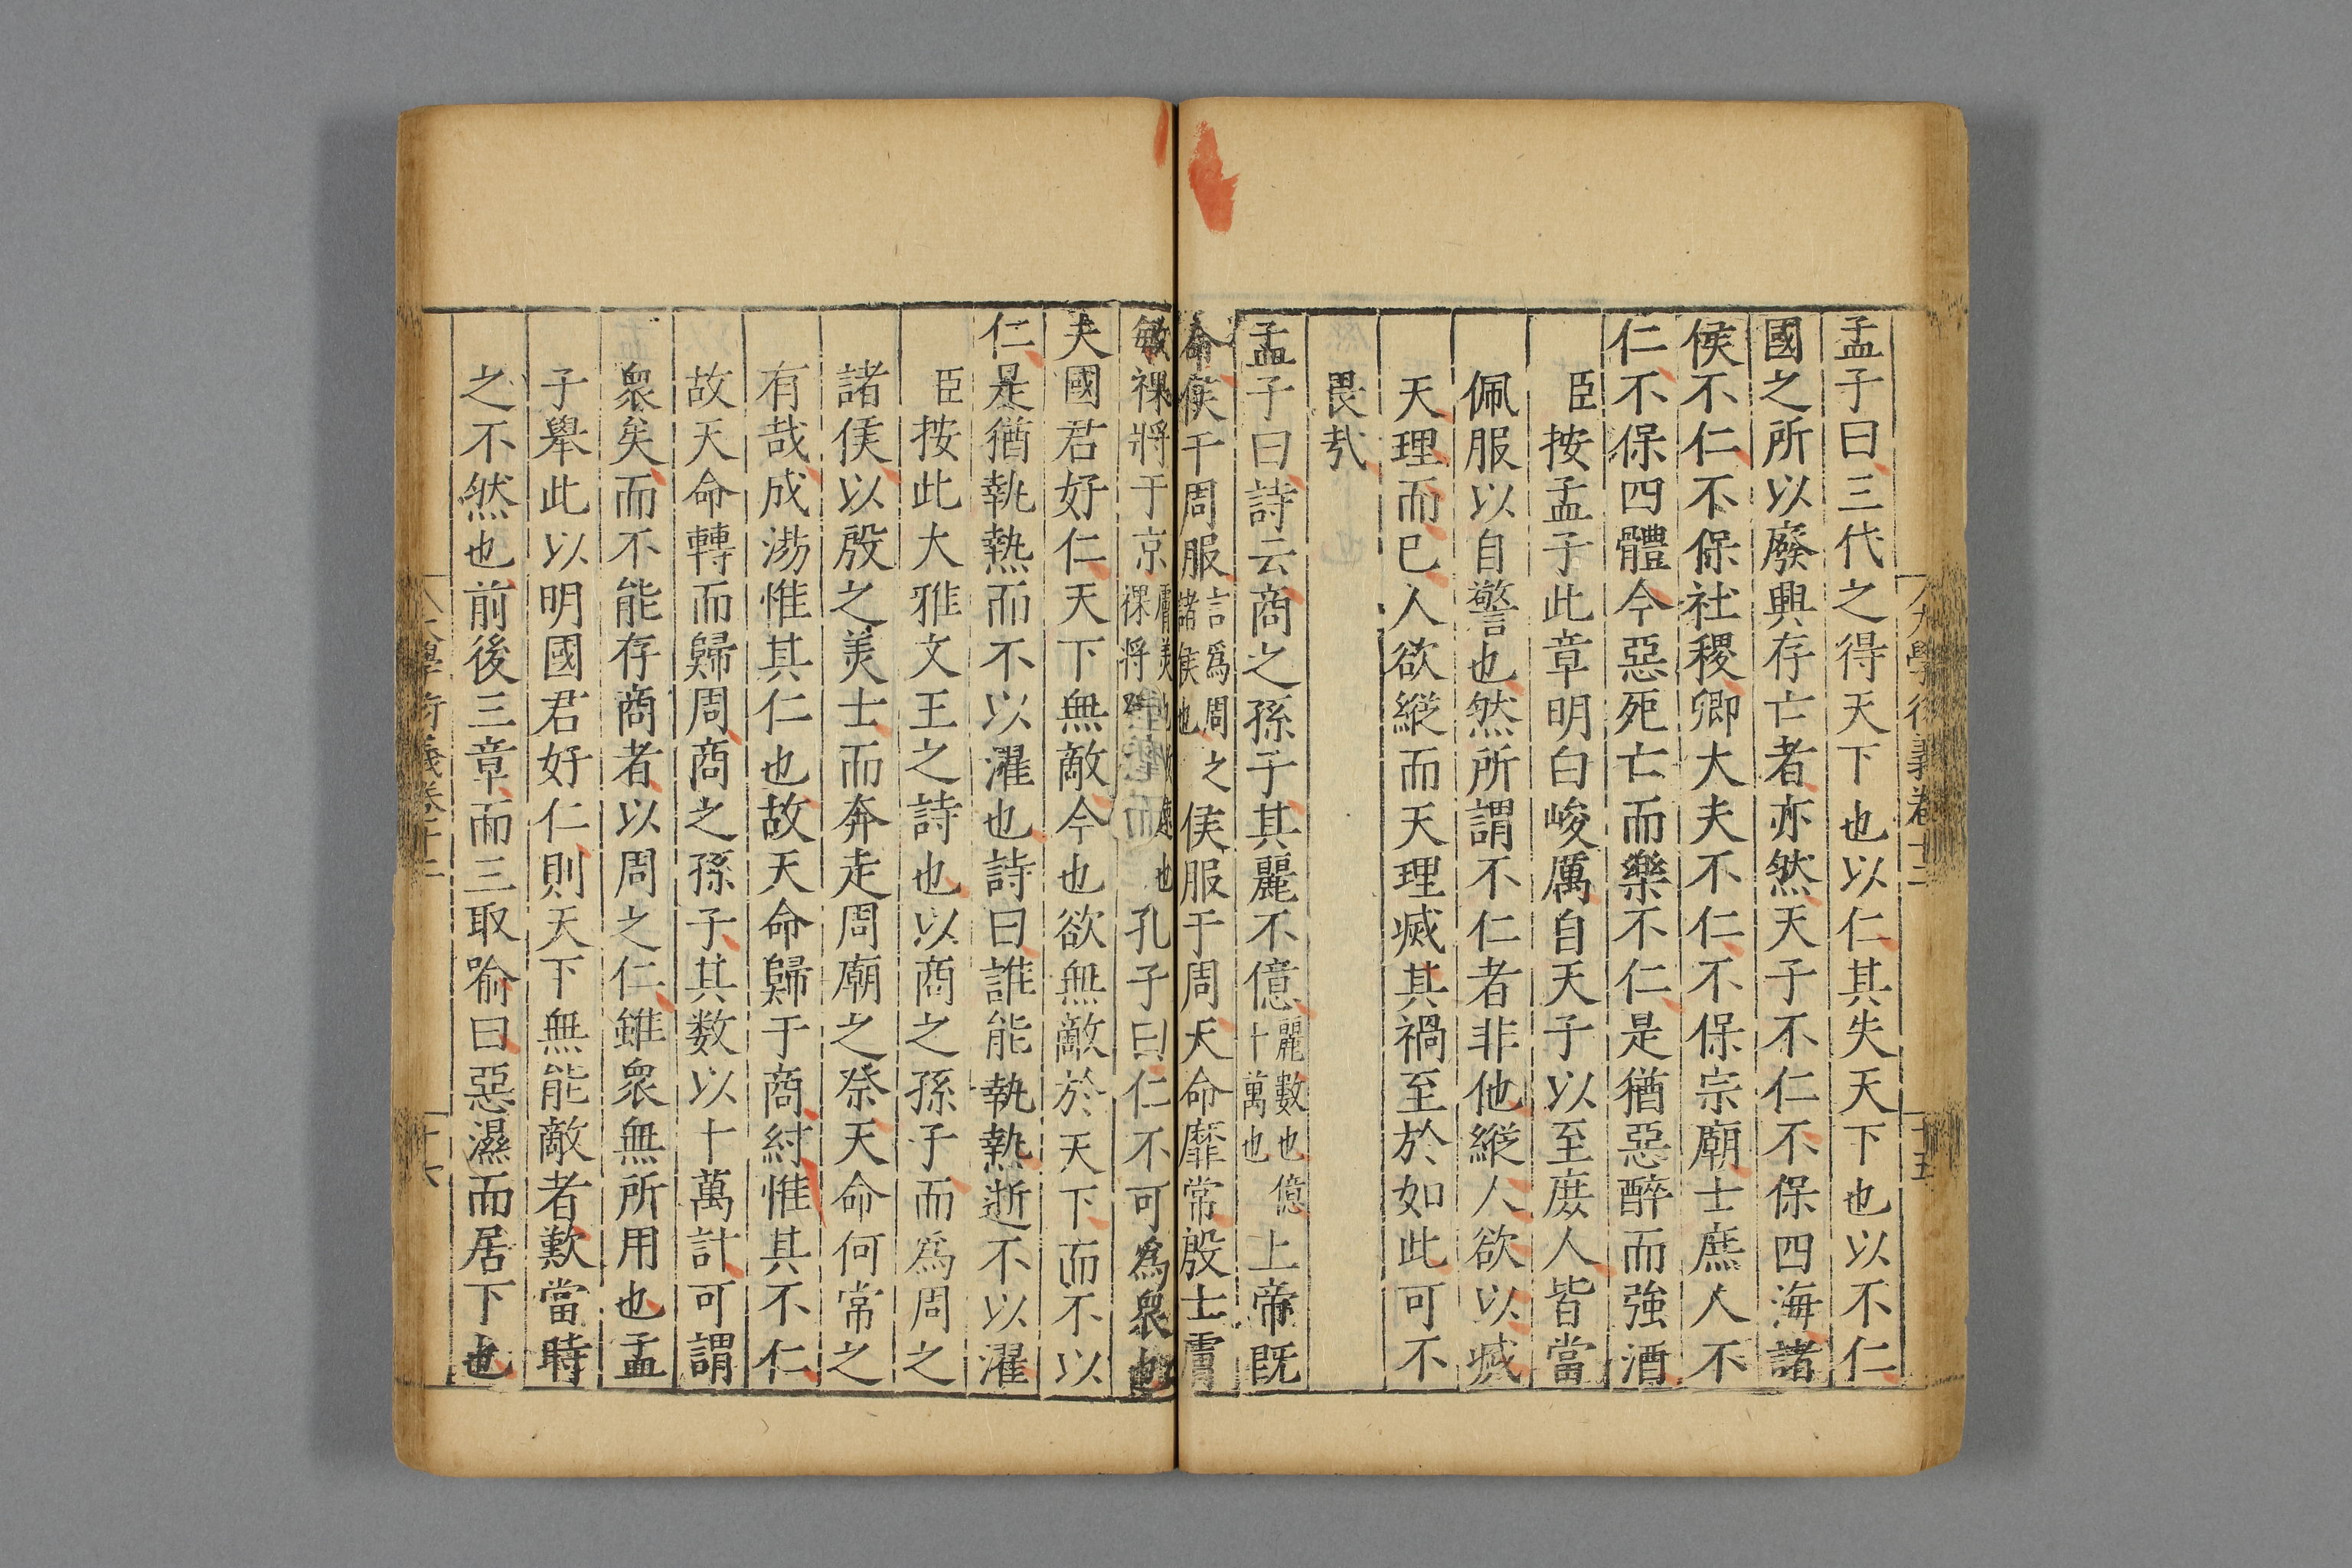 大學衍義卷十二
十五
孟子曰三代之得天下也以仁其失天下也以不仁
國之所以廢興存亡者亦然天子不仁不保四海諸
侯不仁不保社稷卿大夫不仁不保宗廟士庶人不
仁不保四體今惡死亡而樂不仁是猶惡醉而強酒
臣按孟子此章明白峻厲自天子以至庶人皆當
佩服以自警也然所謂不仁者非他縱人欲以滅
天理而已人欲縱而天理滅其禍至於如此可不
畏㢤
孟子曰詩云商之孫子其麗不億麗數也億十萬也上帝旣
命侯于周服言爲周諸侯也之侯服于周天命靡常殷士膚
敏祼將于京膚美也敏達也祼將孔子曰仁不可為衆也
夫國君好仁天下無敵今也欲無敵於天下而不以
仁是猶執熱而不以濯也詩曰誰能執熱逝不以濯
臣按此大雅文王之詩也以商之孫子而爲周之
諸侯以殷之美士而奔走周廟之祭天命何常之
有哉成湯惟其仁也故天命歸于商紂惟其不仁
故天命轉而歸周商之孫子其数以十萬計可謂
衆矣而不能存商者以周之仁雖衆無所用也孟
子舉此以明國君好仁則天下無能敵者歎當時
之不然也前後三章而三取喻曰惡濕而居下也
大學衍義卷十二
十六